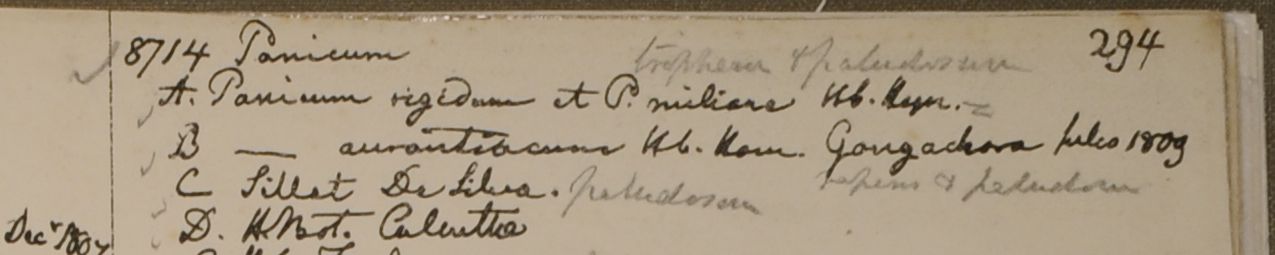 8714 Panicum 294
tripheron & paludosum
A. Panicum rigidum et P. miliare Hb. Heyn.
B — aurantiacum Hb. Ham. Gongachora 1809
repens & paludosum
C Sillet De Silva. paludosum
Decr 1807
D. H. Bot. Calcutta